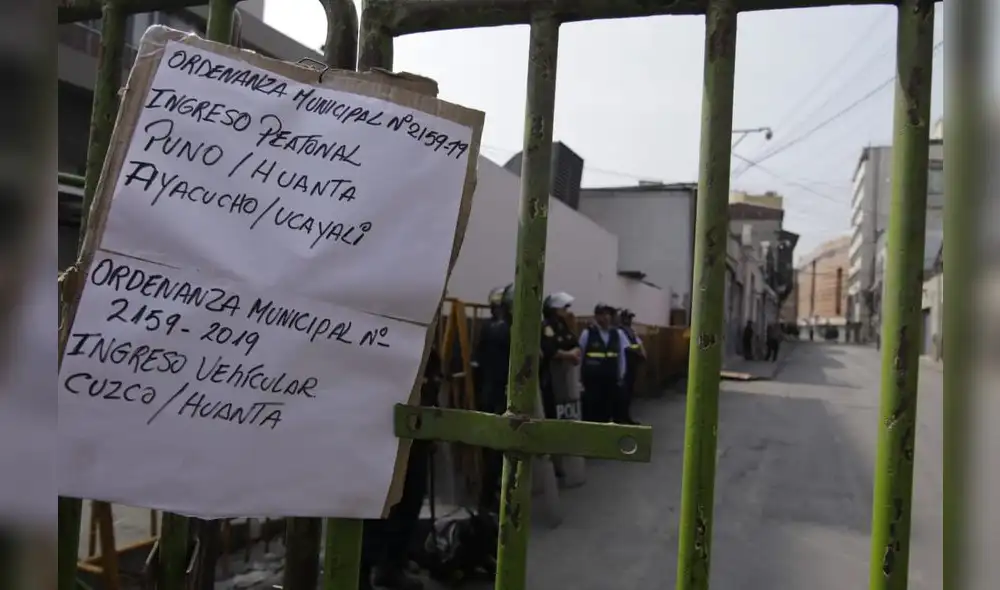 ORDENANZA MUNICIPAL Nº 2159-19
INGRESO PEATONAL
PUNO / HUANTA
AYACUCHO/UCAYALI
ORDENANZA MUNICIPAL Nº-
2159-2019
INGRESO VEHÍCULAR
CUZCO / HUANTA